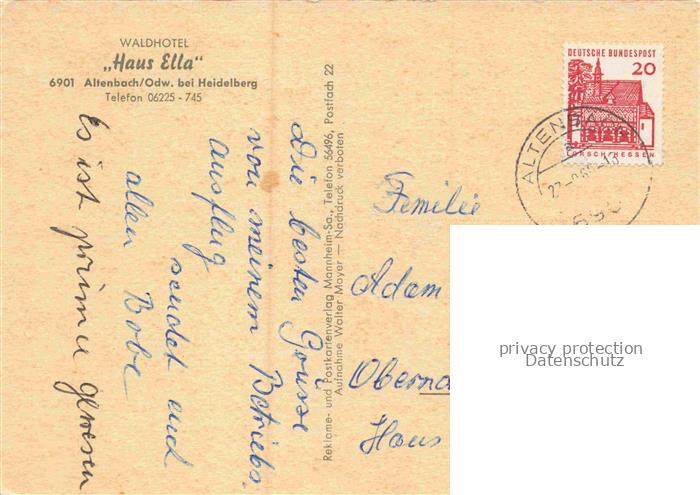 WALDHOTEL
„Haus Ella"
6901 Altenbach/Odw. bei Heidelberg
Telefon 06225 - 745
Die besten Grüsse
von meinem Betriebs.
ausflug
sendet eud
allen Bobe
Es ist prima gewesen
Reklame- und Postkartenverlag Mannheim-Sa., Telefon 56496, Postfach 22
Aufnahme Walter Mayer — Nachdruck verboten
DEUTSCHE BUNDESPOST
20
LORSCH HESSEN
ALTENBA
Familie
Adam
Obern
Haus
privacy protection
Datenschutz